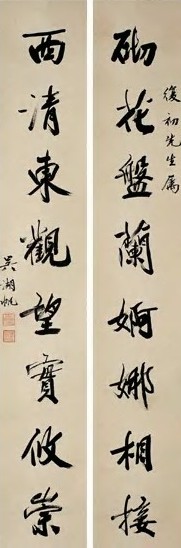 復初先生属
砌花盤蘭婀娜相接
西清東觀望實攸崇
吳湖帆